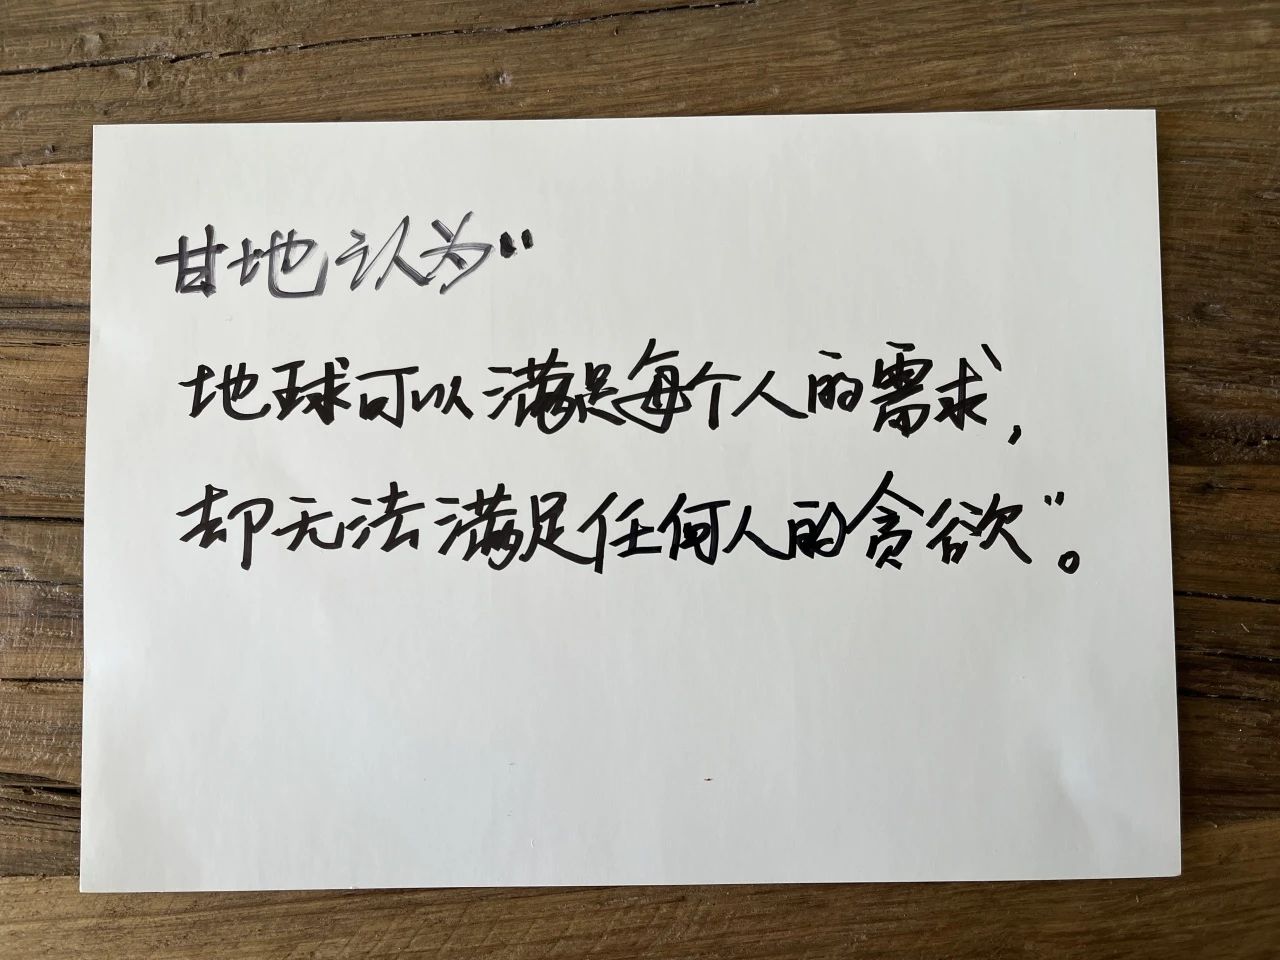 甘地认为“
地球可以满足每个人的需求，
却无法满足任何人的贪欲”。